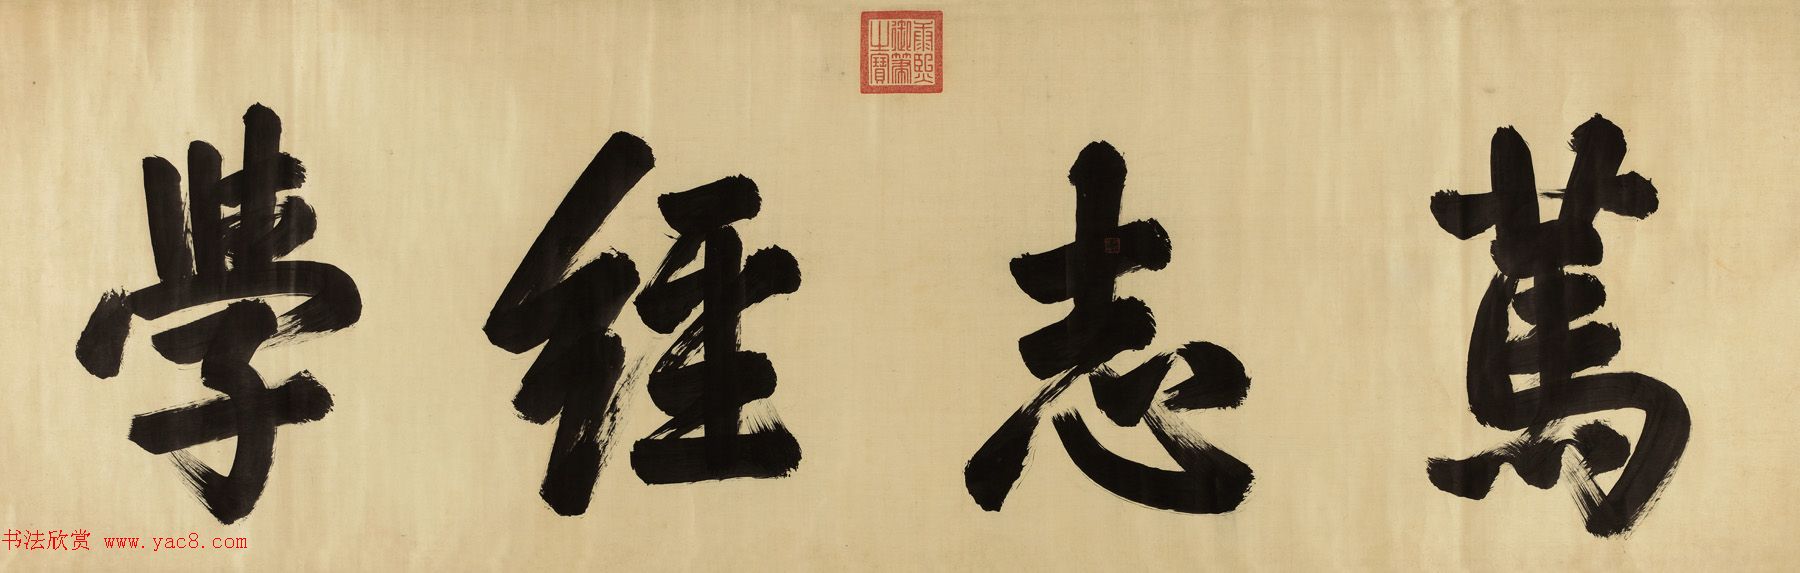 篤志經學
康熙御筆之寶
书法欣赏 www.yac8.com